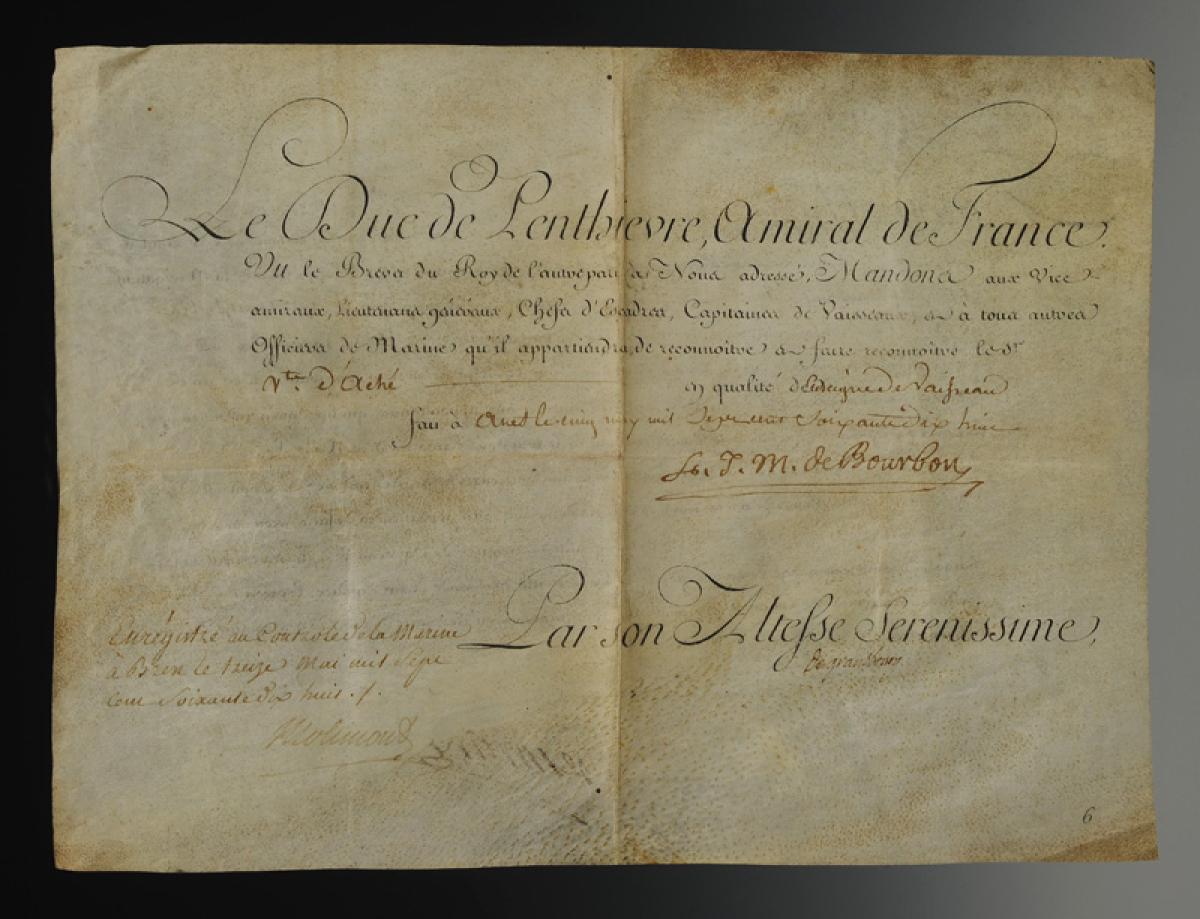 Le Duc de Penthievre, Amiral de France.
Vu le Brevet du Roy de l'autre part à Nous adressé, Mandons aux Vice
amiraux, Lieutenans généraux, Chefs d'Escadres, Capitaines de Vaisseaux, et à tous autres
Officiers de Marine qu'il appartiendra, de reconnoître et faire reconnoître le Sr
Vte d'Aché en qualité d'Enseigne de Vaisseau
fait à Anet le cinq may mil Sept cent Soixante dix huit
L. J. M. de Bourbon
Par son Altesse Serenissime,
Enregistré au Controle de la Marine
à Brest le treize Mai mil Sept
Cent Soixante dix huit ./.
6